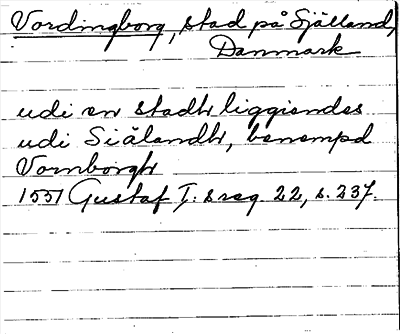 Vordingborg, stad på Själland,
Danmark
udi en stadh liggiendes
udi Siälandh, benempd
Vornborgh
1551 Gustaf I:s reg. 22, s. 237.